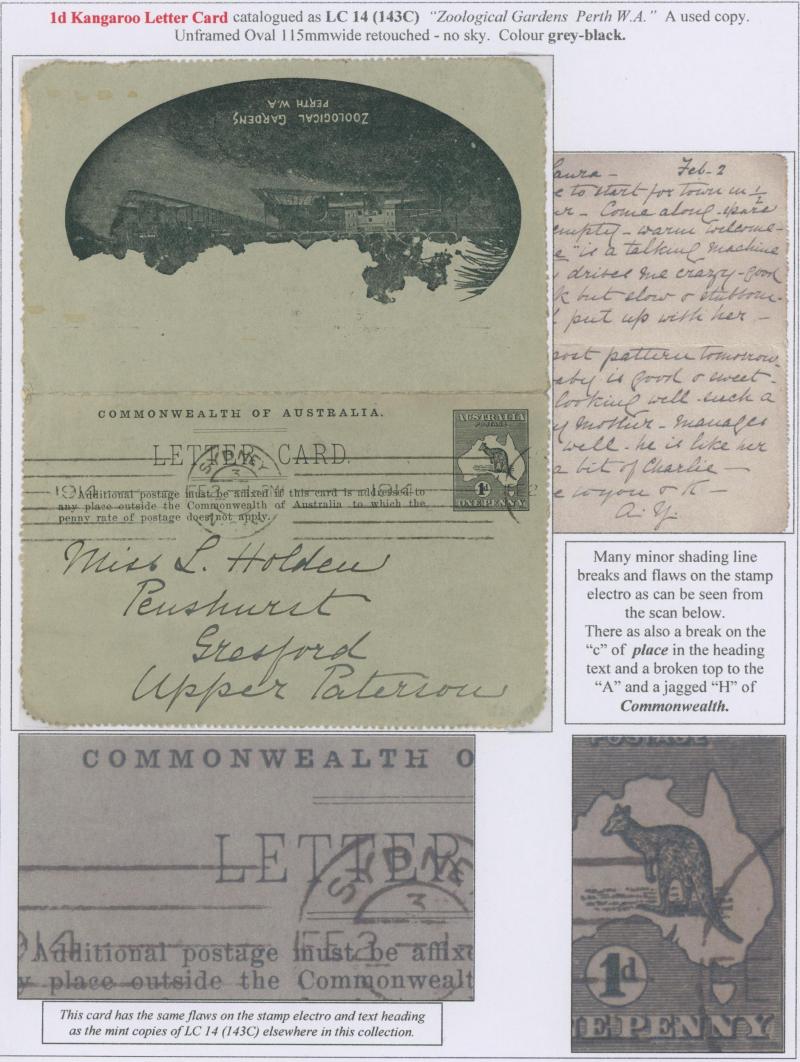 1d Kangaroo Letter Card catalogued as LC 14 (143C) "Zoological Gardens Perth W.A." A used copy.
Unframed Oval 115mmwide retouched - no sky. Colour grey-black.
ZOOLOGICAL GARDENS
PERTH W.A
COMMONWEALTH OF AUSTRALIA.
LETTER CARD.
AUSTRALIA
POSTAGE
1d
ONE PENNY
SYDNEY
3
1914 FEB 2 PM 1914 FEB 2
Additional postage must be affixed if this card is addressed to
any place outside the Commonwealth of Australia to which the
penny rate of postage does not apply.
Miss L. Holden
Penshurst
Gresford
Upper Paterson
aura - Feb. 2
e to start for town in ½
ur - Come along - spare
empty - warm welcome -
e" is a talking machine
drives me crazy - good
k but slow & stubborn.
put up with her -
post pattern tomorrow.
aby is good & sweet -
looking well such a
y mother - manages
well - he is like her
a bit of Charlie -
e to you & K -
A. Y.
Many minor shading line
breaks and flaws on the stamp
electro as can be seen from
the scan below.
There as also a break on the
"c" of place in the heading
text and a broken top to the
"A" and a jagged "H" of
Commonwealth.
COMMONWEALTH O
LETTER
SYDNEY
3
914 FE 2
Additional postage must be affixe
y place outside the Commonwealt
POSTAGE
1d
NE PENNY
This card has the same flaws on the stamp electro and text heading
as the mint copies of LC 14 (143C) elsewhere in this collection.